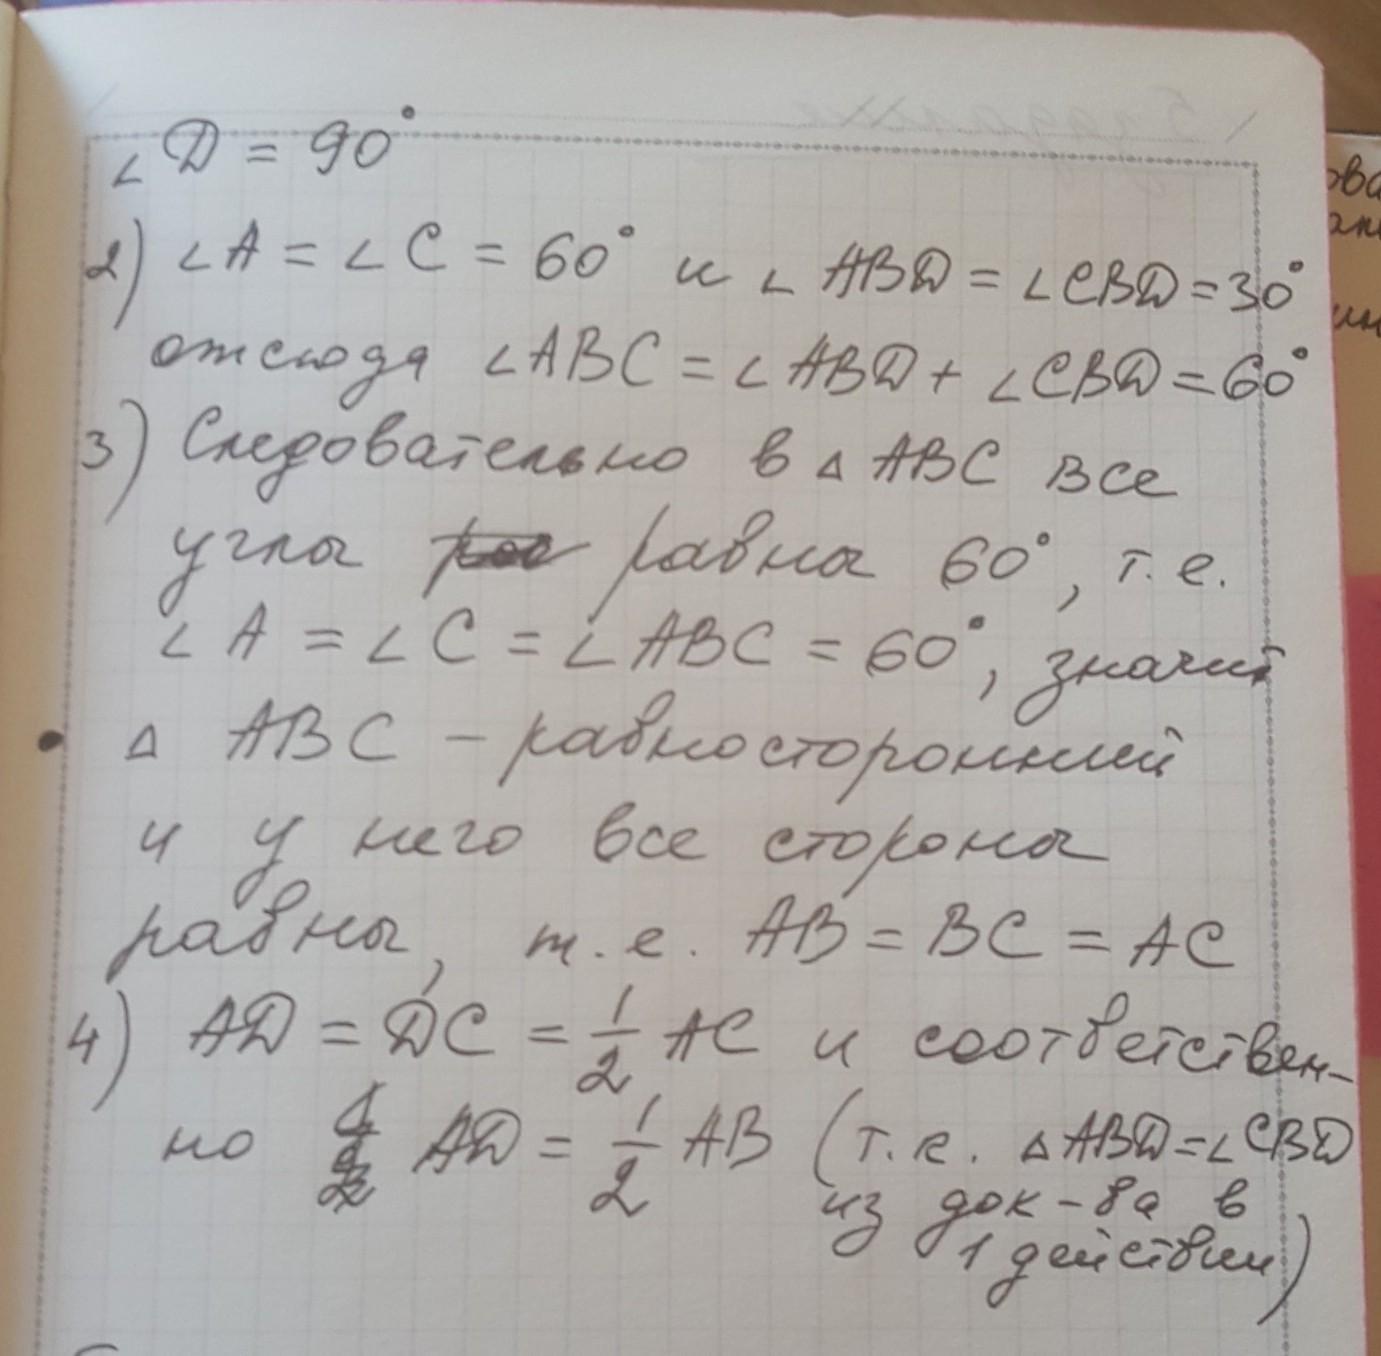 ∠D = 90°
2) ∠A = ∠C = 60° и ∠ABD = ∠CBD = 30°
отсюда ∠ABC = ∠ABD + ∠CBD = 60°
3) Следовательно в △ABC все
углы равны 60°, т.е.
∠A = ∠C = ∠ABC = 60°, значит
△ ABC - равносторонний
и у него все стороны
равны, т.е. AB = BC = AC
4) AD = DC = 1/2 AC и соответствен-
но AD = 1/2 AB (т.к. △ABD = ∠CBD
из док-ва в
1 действии)